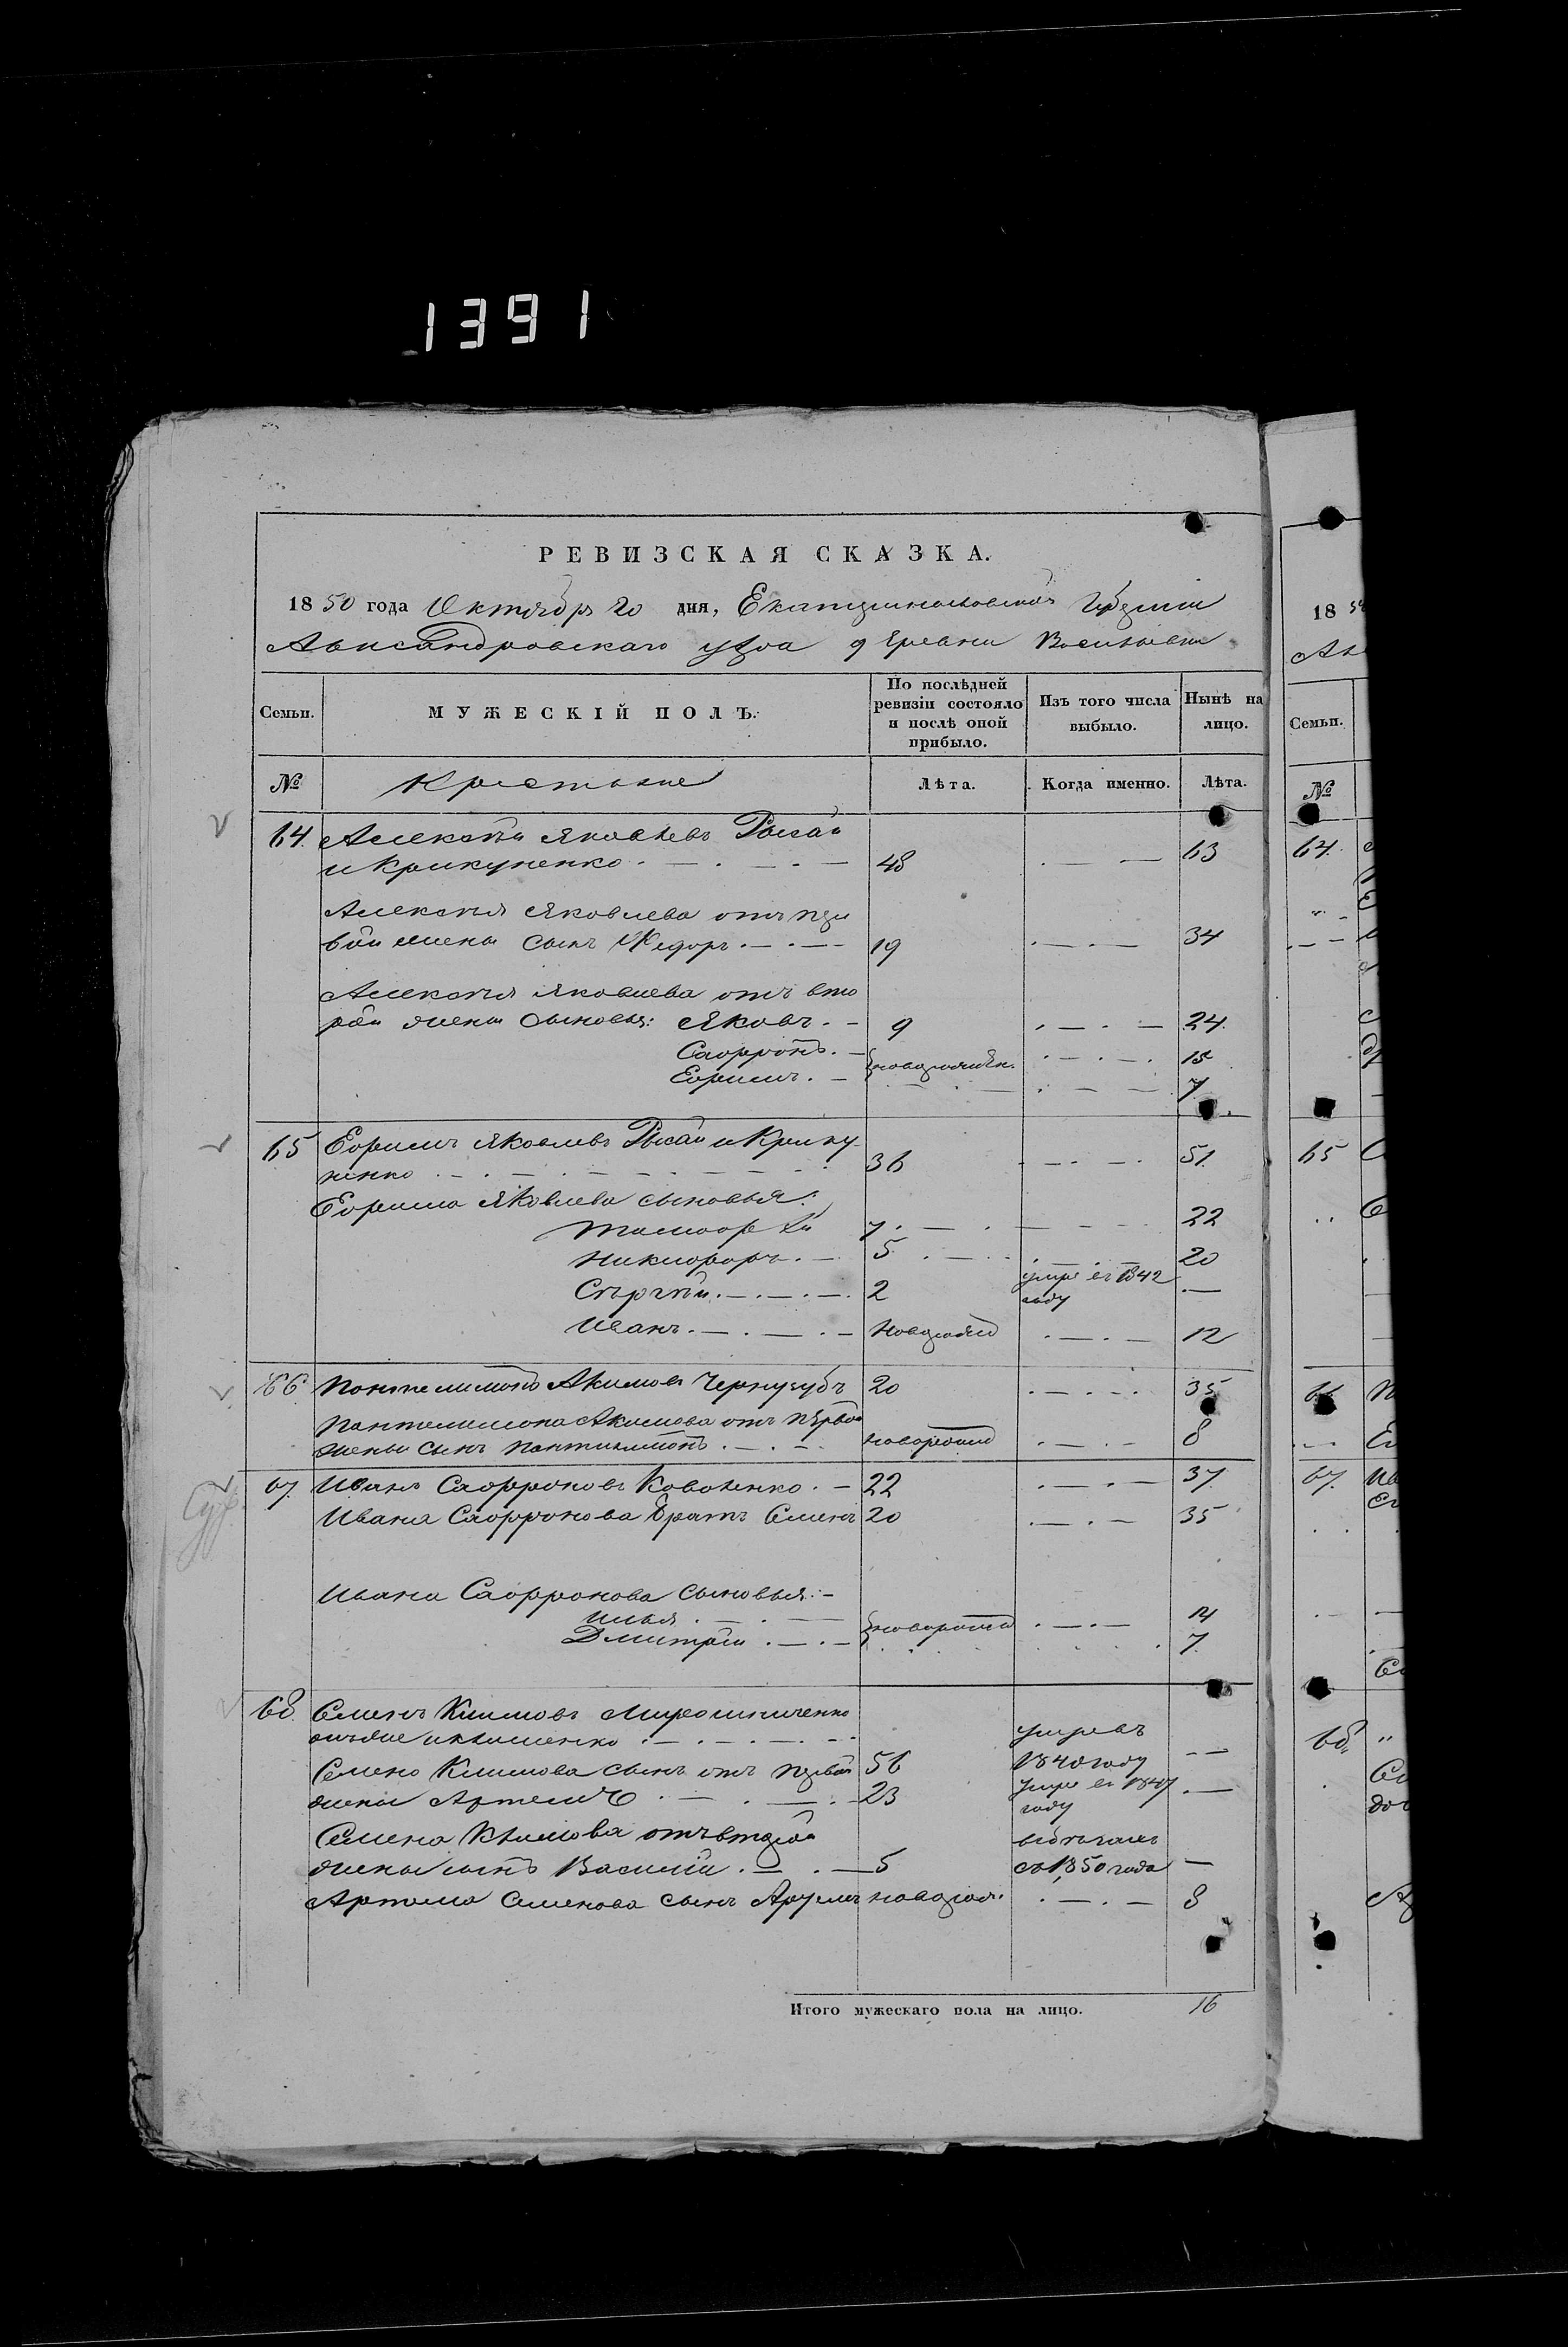 1391
РЕВИЗСКАЯ СКАЗКА.
1850 года Октября 20 дня, Екатеринославской Губернии
Александровскаго уѣзда деревни Васильевки
Семьи. МУЖЕСКІЙ ПОЛЪ. По послѣдней ревизіи состояло и послѣ оной прибыло. Изъ того числа выбыло. Нынѣ на лицо.
№ Крестьяне Лѣта. Когда именно. Лѣта.
64. Алексѣй Яковлевъ Рысай
и Крикуненко 48 63
Алексѣя Яковлева отъ пер
вой жены сынъ Федоръ 19 34
Алексѣя Яковлева отъ вто
рой жены сыновья: Яковъ 9 24
Сафронъ новорожден. 15
Ефимъ 7
65 Ефимъ Яковлевъ Рысай и Крику
ненко 36 51
Ефима Яковлева сыновья:
Тимофѣй 7 22
Никифоръ 5 20
Сергѣй 2 умре въ 1842
году
Иванъ новорож 12
66 Понтелимонъ Акимовъ Чернузубъ 20 35
Пантелимона Акимова отъ первой
жены сынъ Пантилимонъ новорож 8
67. Иванъ Сафроновъ Коваленко 22 37
Ивана Сафронова братъ Семенъ 20 35
Ивана Сафронова сыновья:
Илья новорож 14
Дмитрій 7
68 Семенъ Климовъ Мирошниченко
онъ же и Клименко умре въ
Семена Климова сынъ отъ первой 56 1840 году
жены Артемъ 23 умре въ 1847
году
Семена Климова отъ второй
жены сынъ Василій 5 въ бѣгахъ
съ 1850 года
Артема Семенова сынъ новорож. 8
Итого мужескаго пола на лицо. 16
18
Семьи.
№
64.
65
66
67.
68